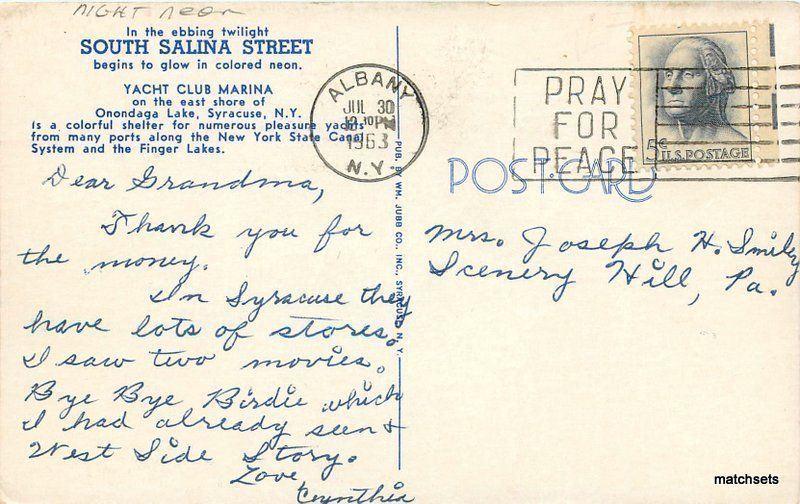 NIGHT Neon
In the ebbing twilight
SOUTH SALINA STREET
begins to glow in colored neon.
YACHT CLUB MARINA
on the east shore of
Onondaga Lake, Syracuse, N.Y.
is a colorful shelter for numerous pleasure yachts
from many ports along the New York State Canal
System and the Finger Lakes.
Dear Grandma,
Thank you for
the money.
In Syracuse they
have lots of stores.
I saw two movies.
Bye Bye Birdie which
I had already seen &
West Side Story.
Love,
Cynthia
PUB. BY WM. JUBB CO., INC., SYRACUSE, N. Y.
ALBANY
JUL 30
PM
1963
N.Y.
PRAY
FOR
PEACE
5¢
U.S. POSTAGE
POST CARD
Mrs. Joseph H. Smily
Scenery Hill, Pa.
matchsets